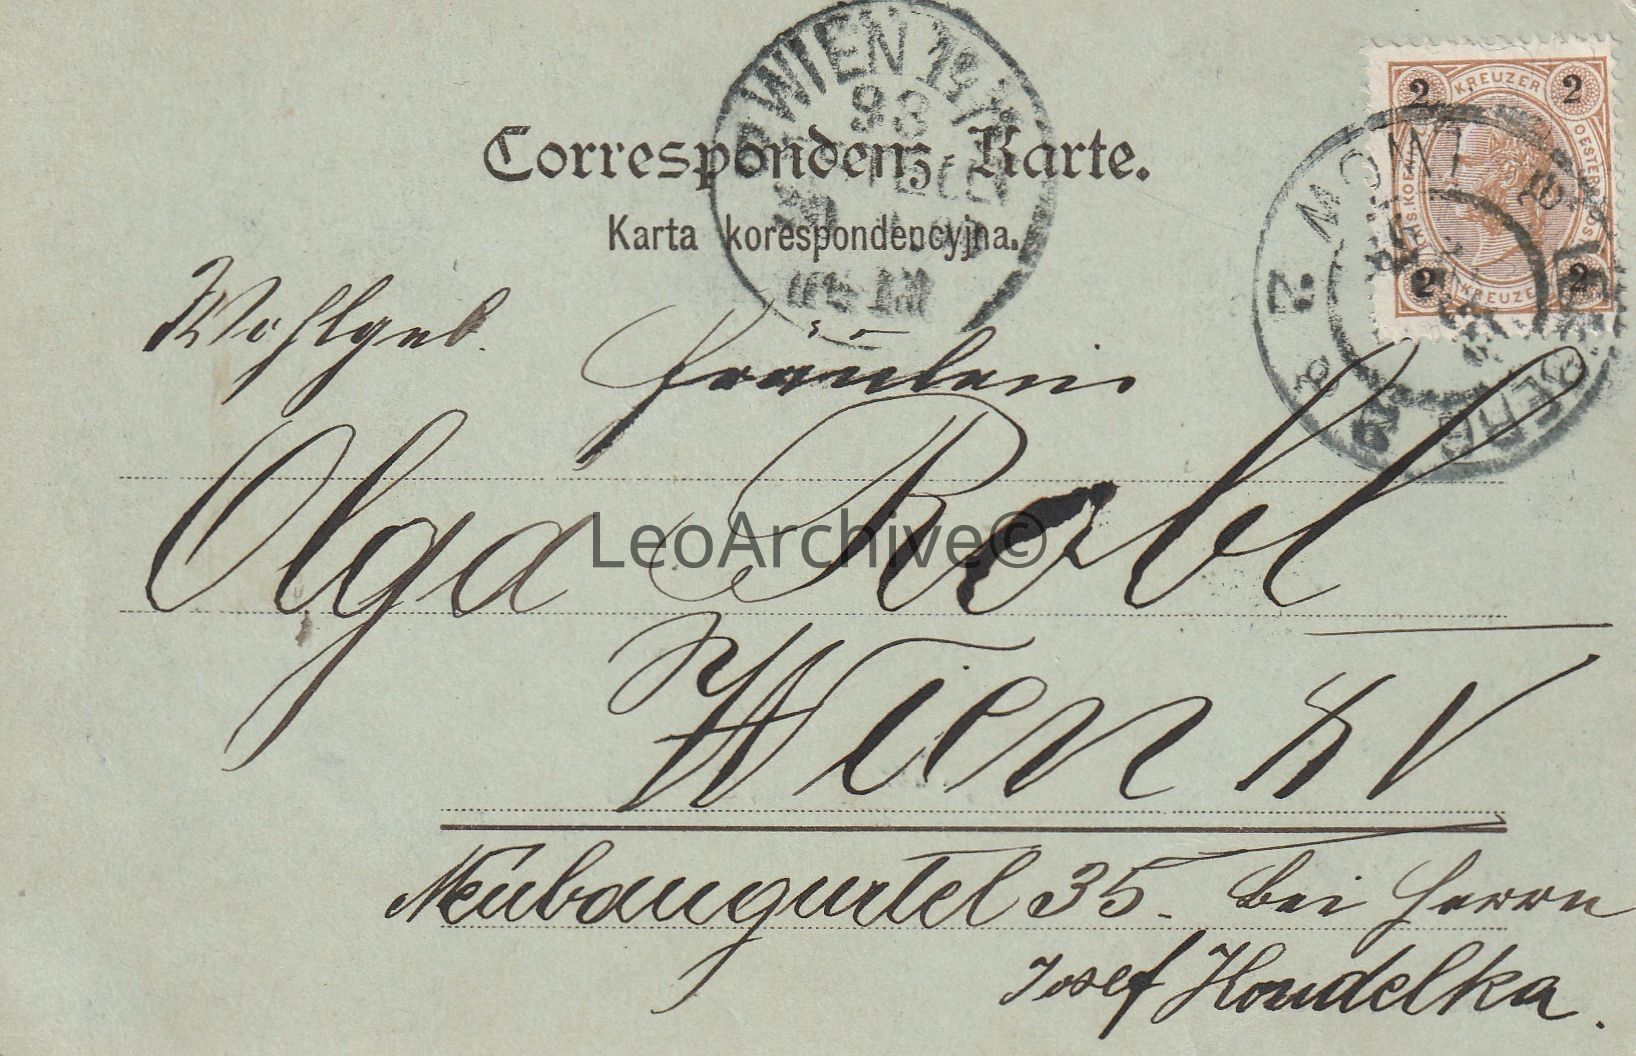 WIEN
2 KREUZER 2
2 KREUZER 2
Correspondenz-Karte.
Karta korespondencyjna.
Wohlgeb. Fräulein
Olga Robl
LeoArchive©
Wien XV
Neubaugürtel 35. bei Herrn
Josef Houdelka.